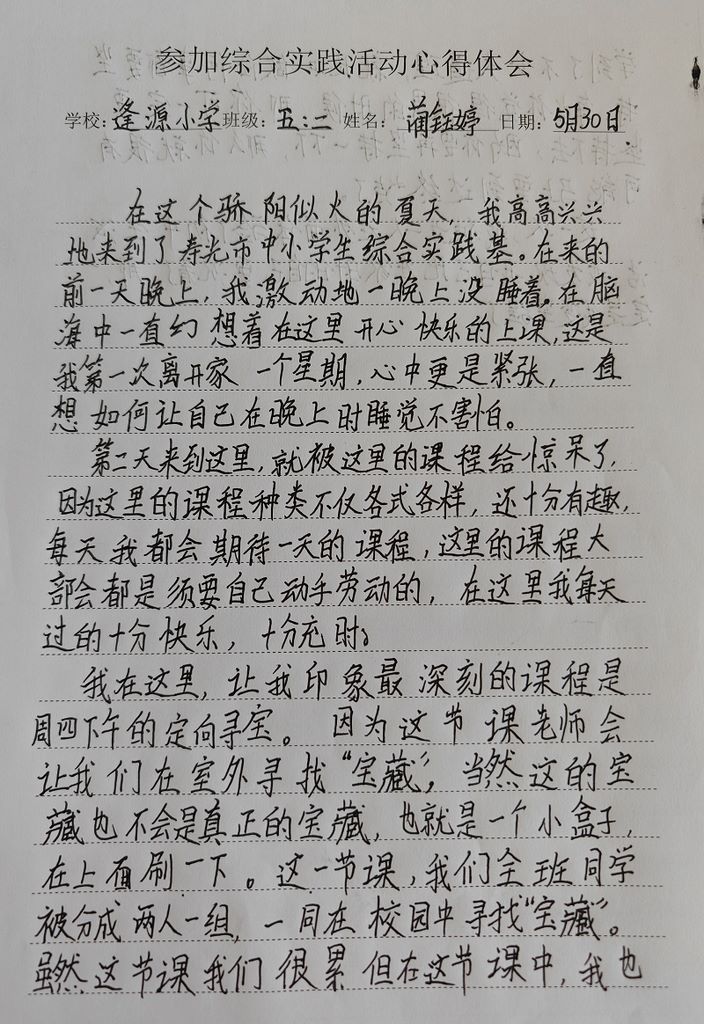 参加综合实践活动心得体会
学校：逢源小学 班级：五：二 姓名：蔺钰婷 日期：5月30日
在这个骄阳似火的夏天，我高高兴兴
地来到了寿光市中小学生综合实践基。在来的
前一天晚上，我激动地一晚上没睡着。在脑
海中一直幻想着在这里开心快乐的上课，这是
我第一次离开家一个星期，心中更是紧张，一直
想如何让自己在晚上时睡觉不害怕。
第二天来到这里，就被这里的课程给惊呆了，
因为这里的课程种类不仅各式各样，还十分有趣，
每天我都会期待一天的课程，这里的课程大
部会都是须要自己动手劳动的，在这里我每天
过的十分快乐，十分充时。
我在这里，让我印象最深刻的课程是
周四下午的定向寻宝。因为这节课老师会
让我们在室外寻找“宝藏”，当然这的宝
藏也不会是真正的宝藏，也就是一个小盒子，
在上面刷一下。这一节课，我们全班同学
被分成两人一组，一同在校园中寻找“宝藏”。
虽然这节课我们很累但在这节课中，我也